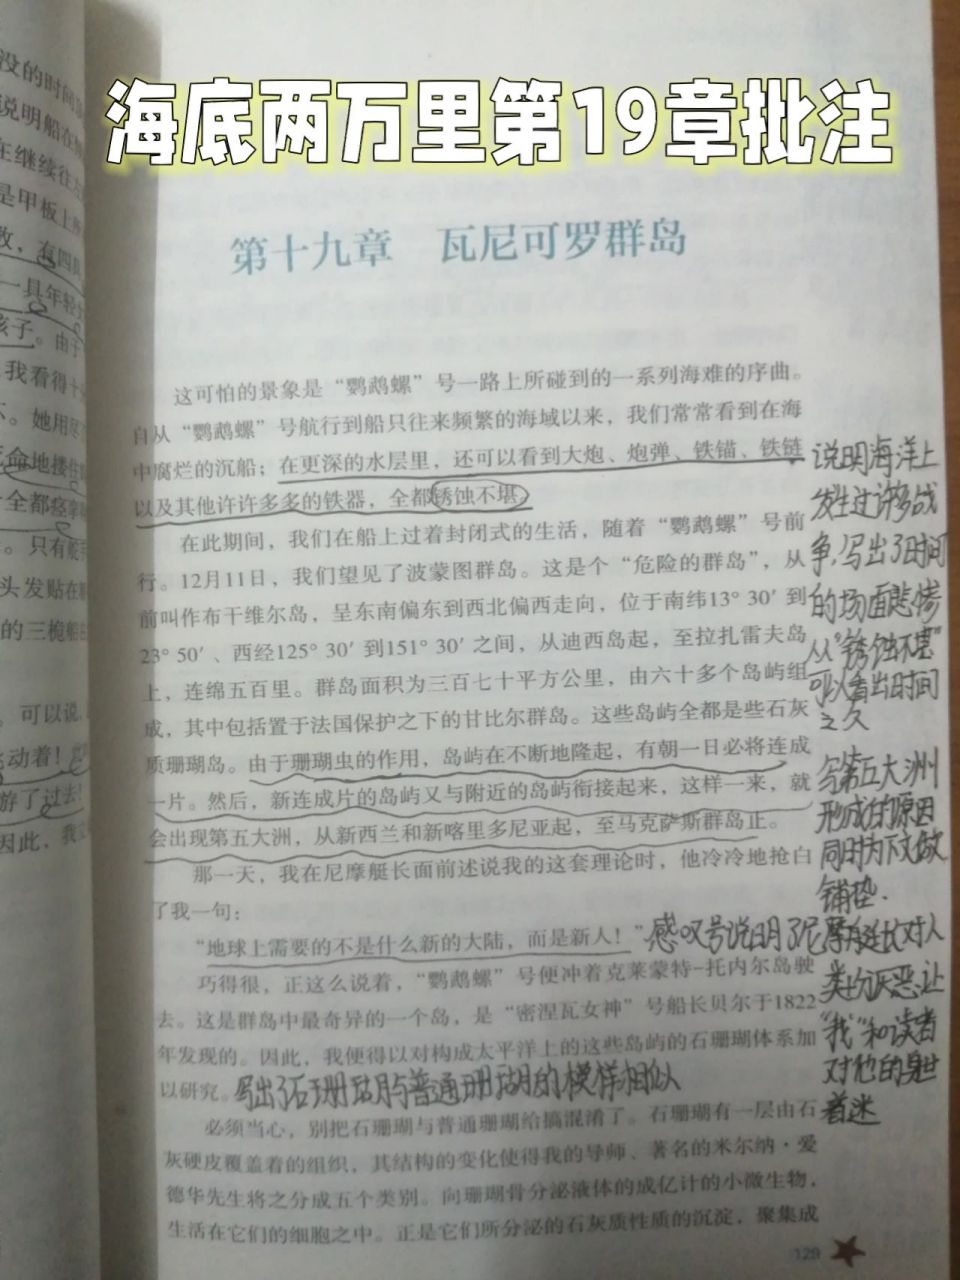 海底两万里第19章批注
没的时间
说明船在
在继续往
是甲板上所
改，有四具
一具年轻
孩子。由于
我看得十
她用尽
命地搂住
全都痉挛
。只有舵手
头发贴在
的三桅船
。可以说，
动着！
游了过去！
因此，我
第十九章 瓦尼可罗群岛
这可怕的景象是“鹦鹉螺”号一路上所碰到的一系列海难的序曲。
自从“鹦鹉螺”号航行到船只往来频繁的海域以来，我们常常看到在海
中腐烂的沉船；在更深的水层里，还可以看到大炮、炮弹、铁锚、铁链
以及其他许许多多的铁器，全都锈蚀不堪。
在此期间，我们在船上过着封闭式的生活，随着“鹦鹉螺”号前
行。12月11日，我们望见了波蒙图群岛。这是个“危险的群岛”，从
前叫作布干维尔岛，呈东南偏东到西北偏西走向，位于南纬13° 30′ 到
23° 50′、西经125° 30′ 到151° 30′ 之间，从迪西岛起，至拉扎雷夫岛
上，连绵五百里。群岛面积为三百七十平方公里，由六十多个岛屿组
成，其中包括置于法国保护之下的甘比尔群岛。这些岛屿全都是些石灰
质珊瑚岛。由于珊瑚虫的作用，岛屿在不断地隆起，有朝一日必将连成
一片。然后，新连成片的岛屿又与附近的岛屿衔接起来，这样一来，就
会出现第五大洲，从新西兰和新喀里多尼亚起，至马克萨斯群岛止。
那一天，我在尼摩艇长面前述说我的这套理论时，他冷冷地抢白
了我一句：
“地球上需要的不是什么新的大陆，而是新人！”
巧得很，正这么说着，“鹦鹉螺”号便冲着克莱蒙特-托内尔岛驶
去。这是群岛中最奇异的一个岛，是“密涅瓦女神”号船长贝尔于1822
年发现的。因此，我便得以对构成太平洋上的这些岛屿的石珊瑚体系加
以研究。
写出了石珊瑚与普通珊瑚的模样相似
必须当心，别把石珊瑚与普通珊瑚给搞混淆了。石珊瑚有一层由石
灰硬皮覆盖着的组织，其结构的变化使得我的导师、著名的米尔纳·爱
德华先生将之分成五个类别。向珊瑚骨分泌液体的成亿计的小微生物，
生活在它们的细胞之中。正是它们所分泌的石灰质性质的沉淀，聚集成
129
说明海洋上
发生过许多战
争！写出了时间
的场面悲惨
从“锈蚀不堪”
可以看出时间
之久
写第五大洲
形成的原因
同时为下文做
铺垫.
感叹号说明了尼摩艇长对人
类的厌恶，让
“我”和读者
对他的身世
着迷